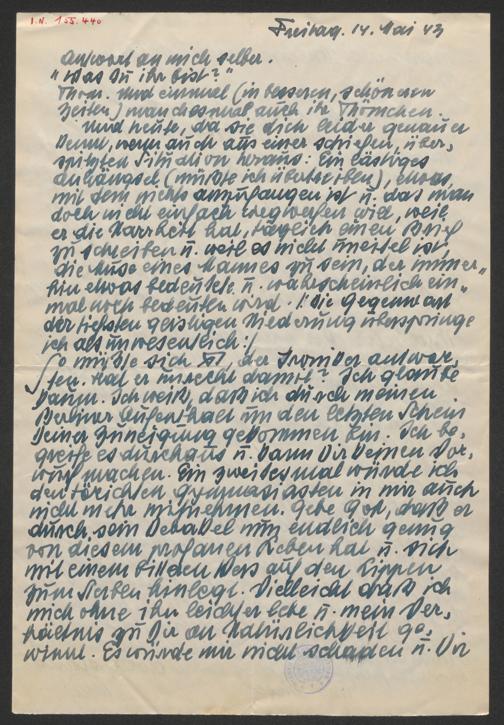 I.N. 155.440
Freitag. 14. Mai 43
Antwort an mich selber.
"Was Du ihr bist?"
Thom. Und einmal (in besseren, schöneren
Zeiten) manchesmal auch ihr Thömchen.
Und heute, da sie dich leider genauer
kennt, wenn auch aus einer schiefen, über-
spitzten Situation heraus: Ein lästiges
Anhängsel (müßte ich übertreiben), etwas,
mit dem nichts anzufangen ist u. das man
doch nicht einfach wegwerfen will, weil
er die Narrheit hat, täglich einen Brief
zu schreiben u. weil es nicht übel ist,
die Muse eines Mannes zu sein, der immer-
hin etwas bedeutete u. wahrscheinlich ein-
mal noch bedeuten wird. /: Die Gegenwart
der tiefsten geistigen Niederung überspringe
ich als unwesentlich :/
So müßte sich der Ironiker antwor-
ten. Hat er unrecht damit? Ich glaube
kaum. Ich weiß, daß ich durch meinen
Berliner Aufenthalt um den letzten Schein
Deiner Zuneigung gekommen bin. Ich be-
greife es durchaus u. kann Dir keinen Vor-
wurf machen. Ein zweitesmal würde ich
den törichten Gymnasiasten in mir auch
nicht mehr mitnehmen. Gebe Gott, daß er
durch sein Debakel nun endlich genug
von diesem profanen Leben hat u. sich
mit einem bittern Vers auf den Lippen
zum Sterben hinlegt. Vielleicht daß ich
mich ohne ihn leichter lebe u. mein Ver-
hältnis zu Dir an Natürlichkeit ge-
winnt. Es würde mir nicht schaden u. Dir